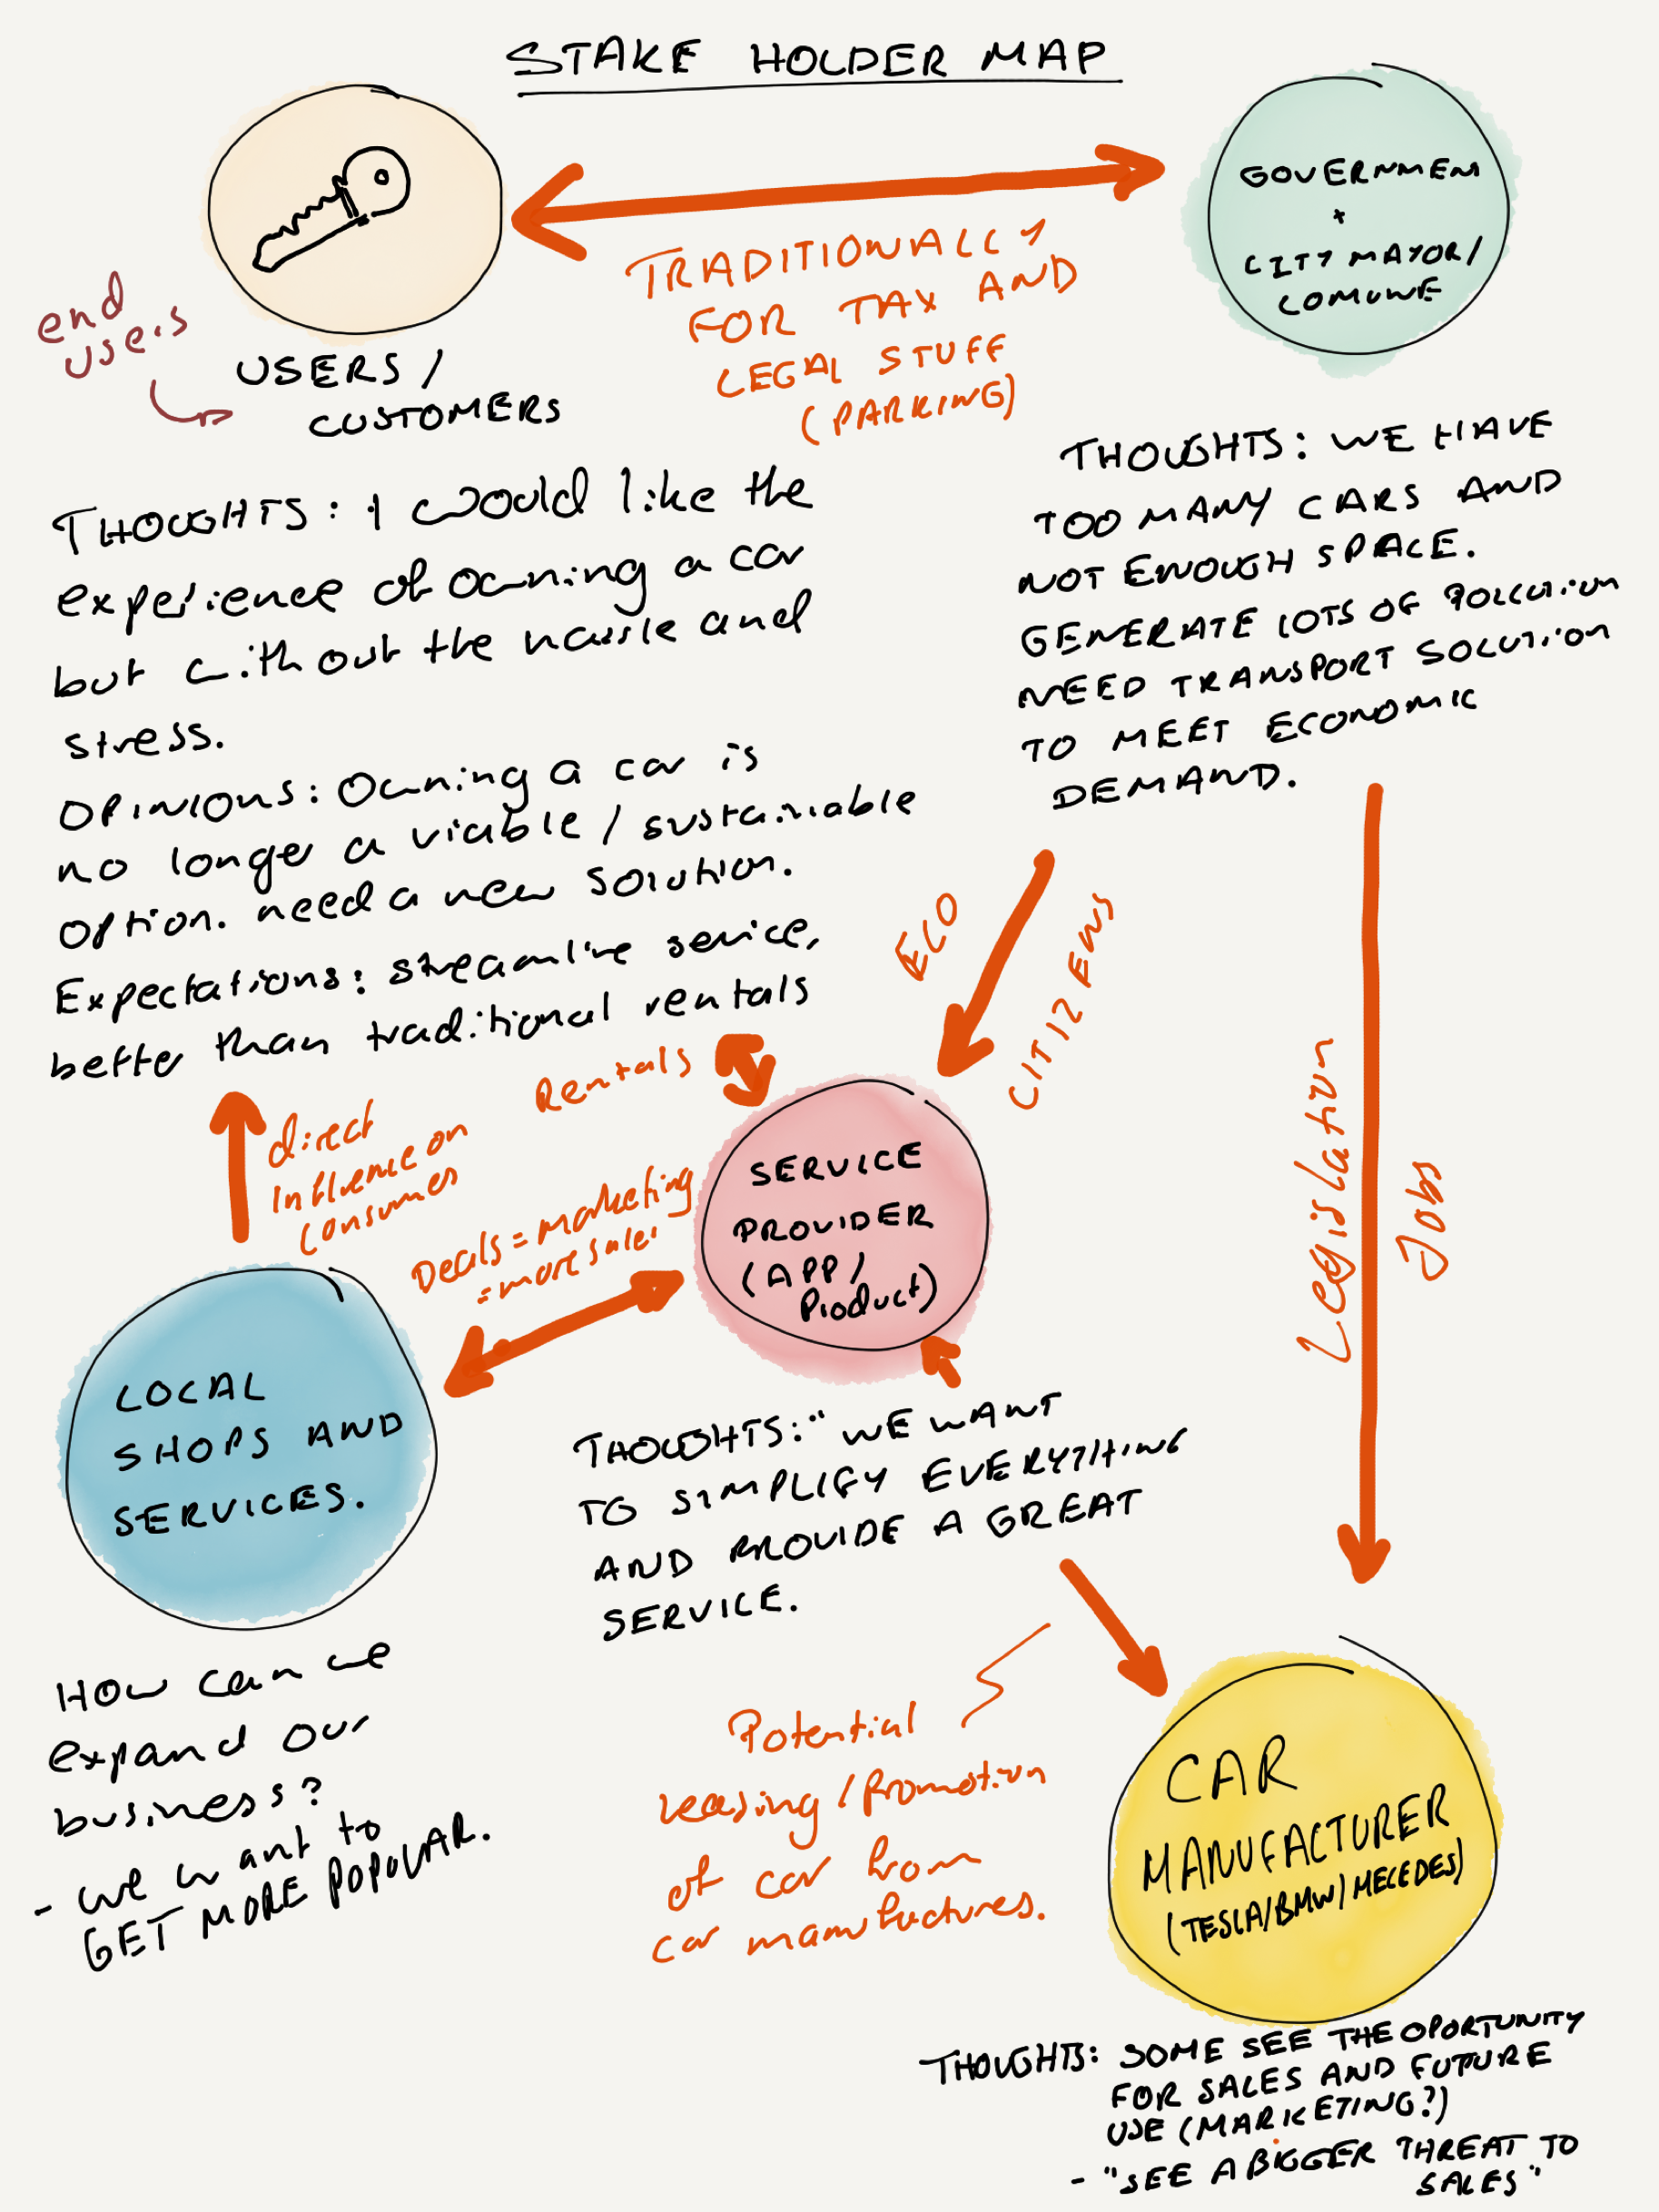 STAKE HOLDER MAP
end
users
USERS /
CUSTOMERS
TRADITIONALLY
FOR TAX AND
LEGAL STUFF
(PARKING)
GOVERNMEN
+
CITY MAYOR/
COMUNE
THOUGHTS: I would like the
experience of owning a car
but without the hassle and
stress.
OPINIONS: Owning a car is
no longer a viable / sustainable
option. need a new solution.
Expectations: streamline service,
better than traditional rentals
THOUGHTS: WE HAVE
TOO MANY CARS AND
NOT ENOUGH SPACE.
GENERATE LOTS OF POLLUTION
NEED TRANSPORT SOLUTION
TO MEET ECONOMIC
DEMAND.
ECO
CITIZENS
Legislation
Jobs
Rentals
direct
influence on
consumer
Deals = marketing
= more sales
SERVICE
PROVIDER
(APP/
Product)
LOCAL
SHOPS AND
SERVICES.
THOUGHTS: "WE WANT
TO SIMPLIFY EVERYTHING
AND PROVIDE A GREAT
SERVICE.
How can we
expand our
business?
- we want to
GET MORE POPULAR.
Potential
leasing / Promotion
of car from
car manufactures.
CAR
MANUFACTURER
(TESLA/BMW/MECEDES)
THOUGHTS: SOME SEE THE OPORTUNITY
FOR SALES AND FUTURE
USE (MARKETING?)
- "SEE A BIGGER THREAT TO
SALES"